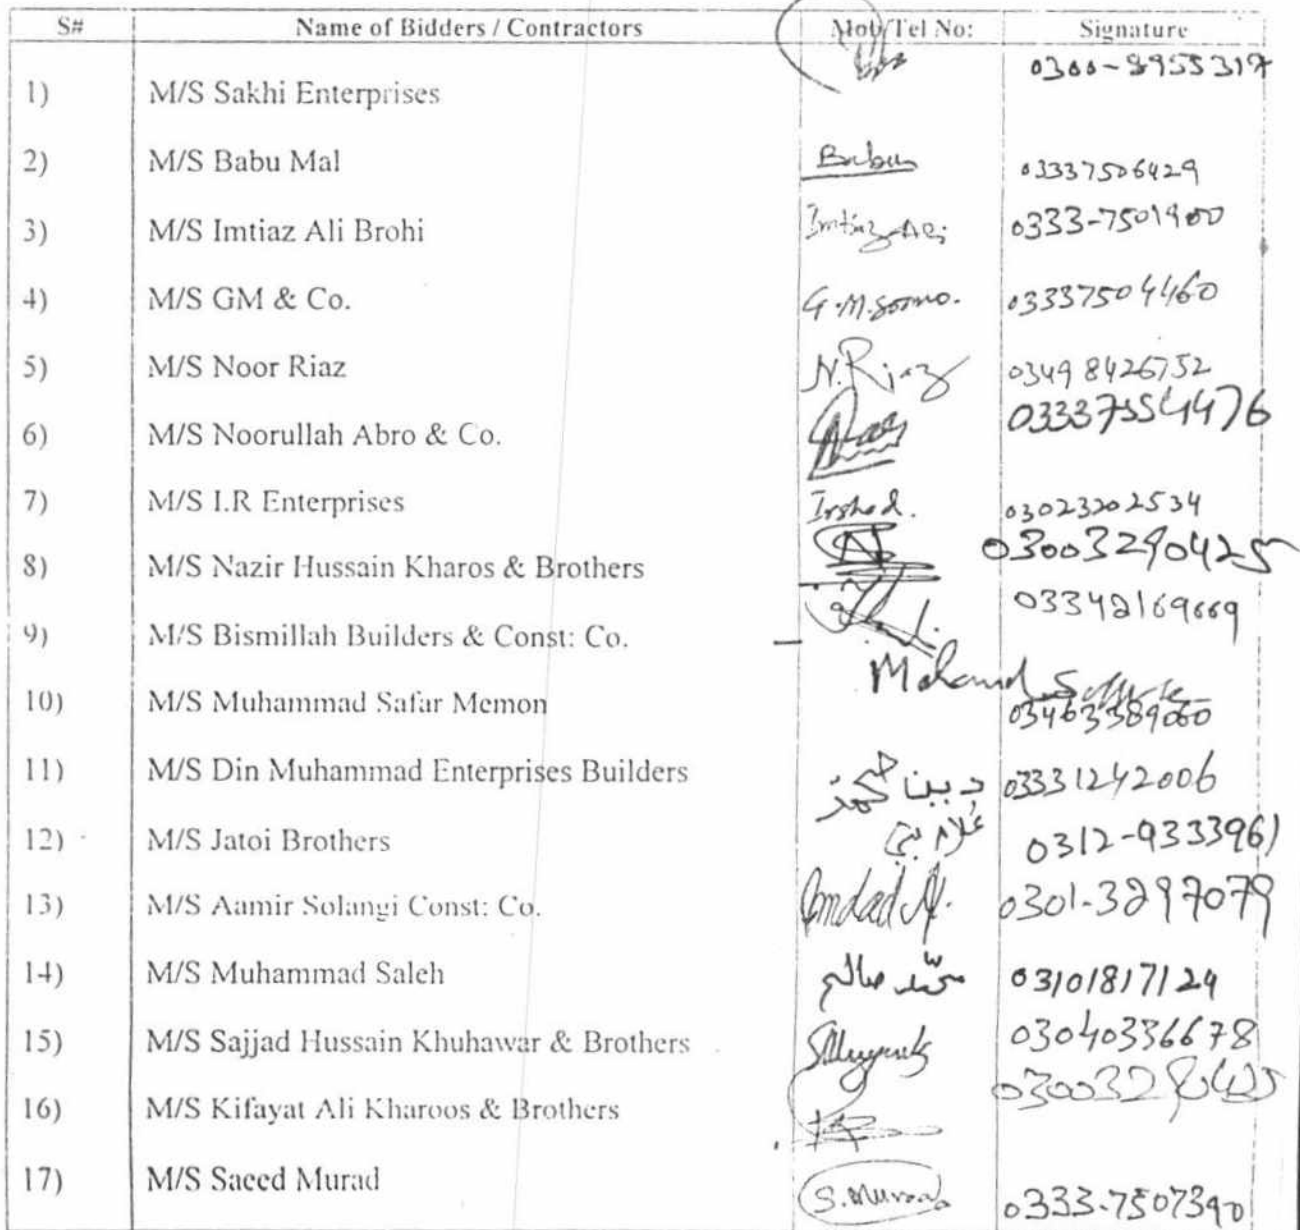 S# Name of Bidders / Contractors Mob/Tel No: Signature
1) M/S Sakhi Enterprises 0300-8955317
2) M/S Babu Mal Babu 03337506429
3) M/S Imtiaz Ali Brohi Imtiaz Ali 0333-7501900
4) M/S GM & Co. G.M.Soomo. 03337504460
5) M/S Noor Riaz N.Riaz 03498426752
6) M/S Noorullah Abro & Co. 03337554476
7) M/S I.R Enterprises Irshad. 03023202534
8) M/S Nazir Hussain Kharos & Brothers 03003290425
9) M/S Bismillah Builders & Const: Co. 03342169669
10) M/S Muhammad Safar Memon 03463389060
11) M/S Din Muhammad Enterprises Builders دين محمد 03331242006
12) M/S Jatoi Brothers غلام نبي 0312-9333961
13) M/S Aamir Solangi Const: Co. Imdad Al. 0301-3297079
14) M/S Muhammad Saleh محمّد صالح 03101817129
15) M/S Sajjad Hussain Khuhawar & Brothers 03040336678
16) M/S Kifayat Ali Kharoos & Brothers 03003290425
17) M/S Saeed Murad S.Murad 0333-7507390